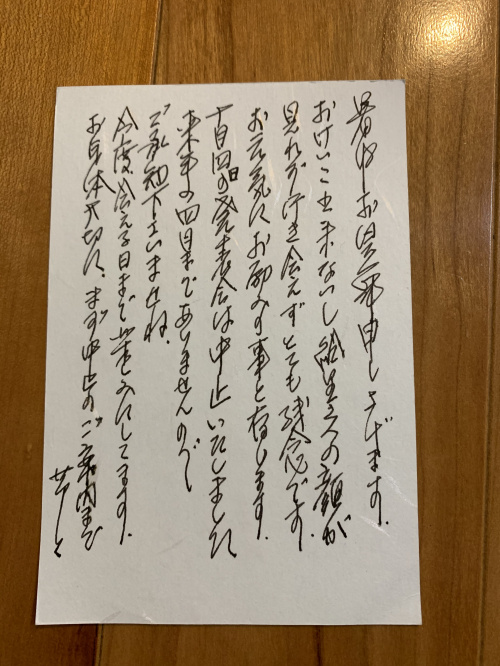 暑中お見舞申し上げます.
おけいこ出来ないし 皆さんの顔が
見れず行き会えずとても残念です.
お元気にお励みの事と存じます.
十月四日の発表会は中止いたしました
来年の四月までありませんので
ご承知下さいませね.
今度会える日まで楽しみにしてます.
お身体大切に. まず中止のご案内まで